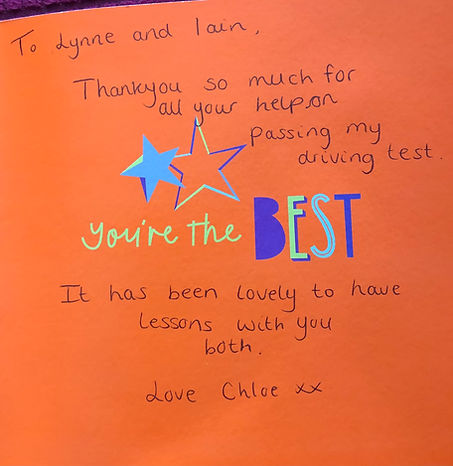 To Lynne and Iain,
Thankyou so much for
all your help on
passing my
driving test.
you're the BEST
It has been lovely to have
lessons with you
both.
Love Chloe xx